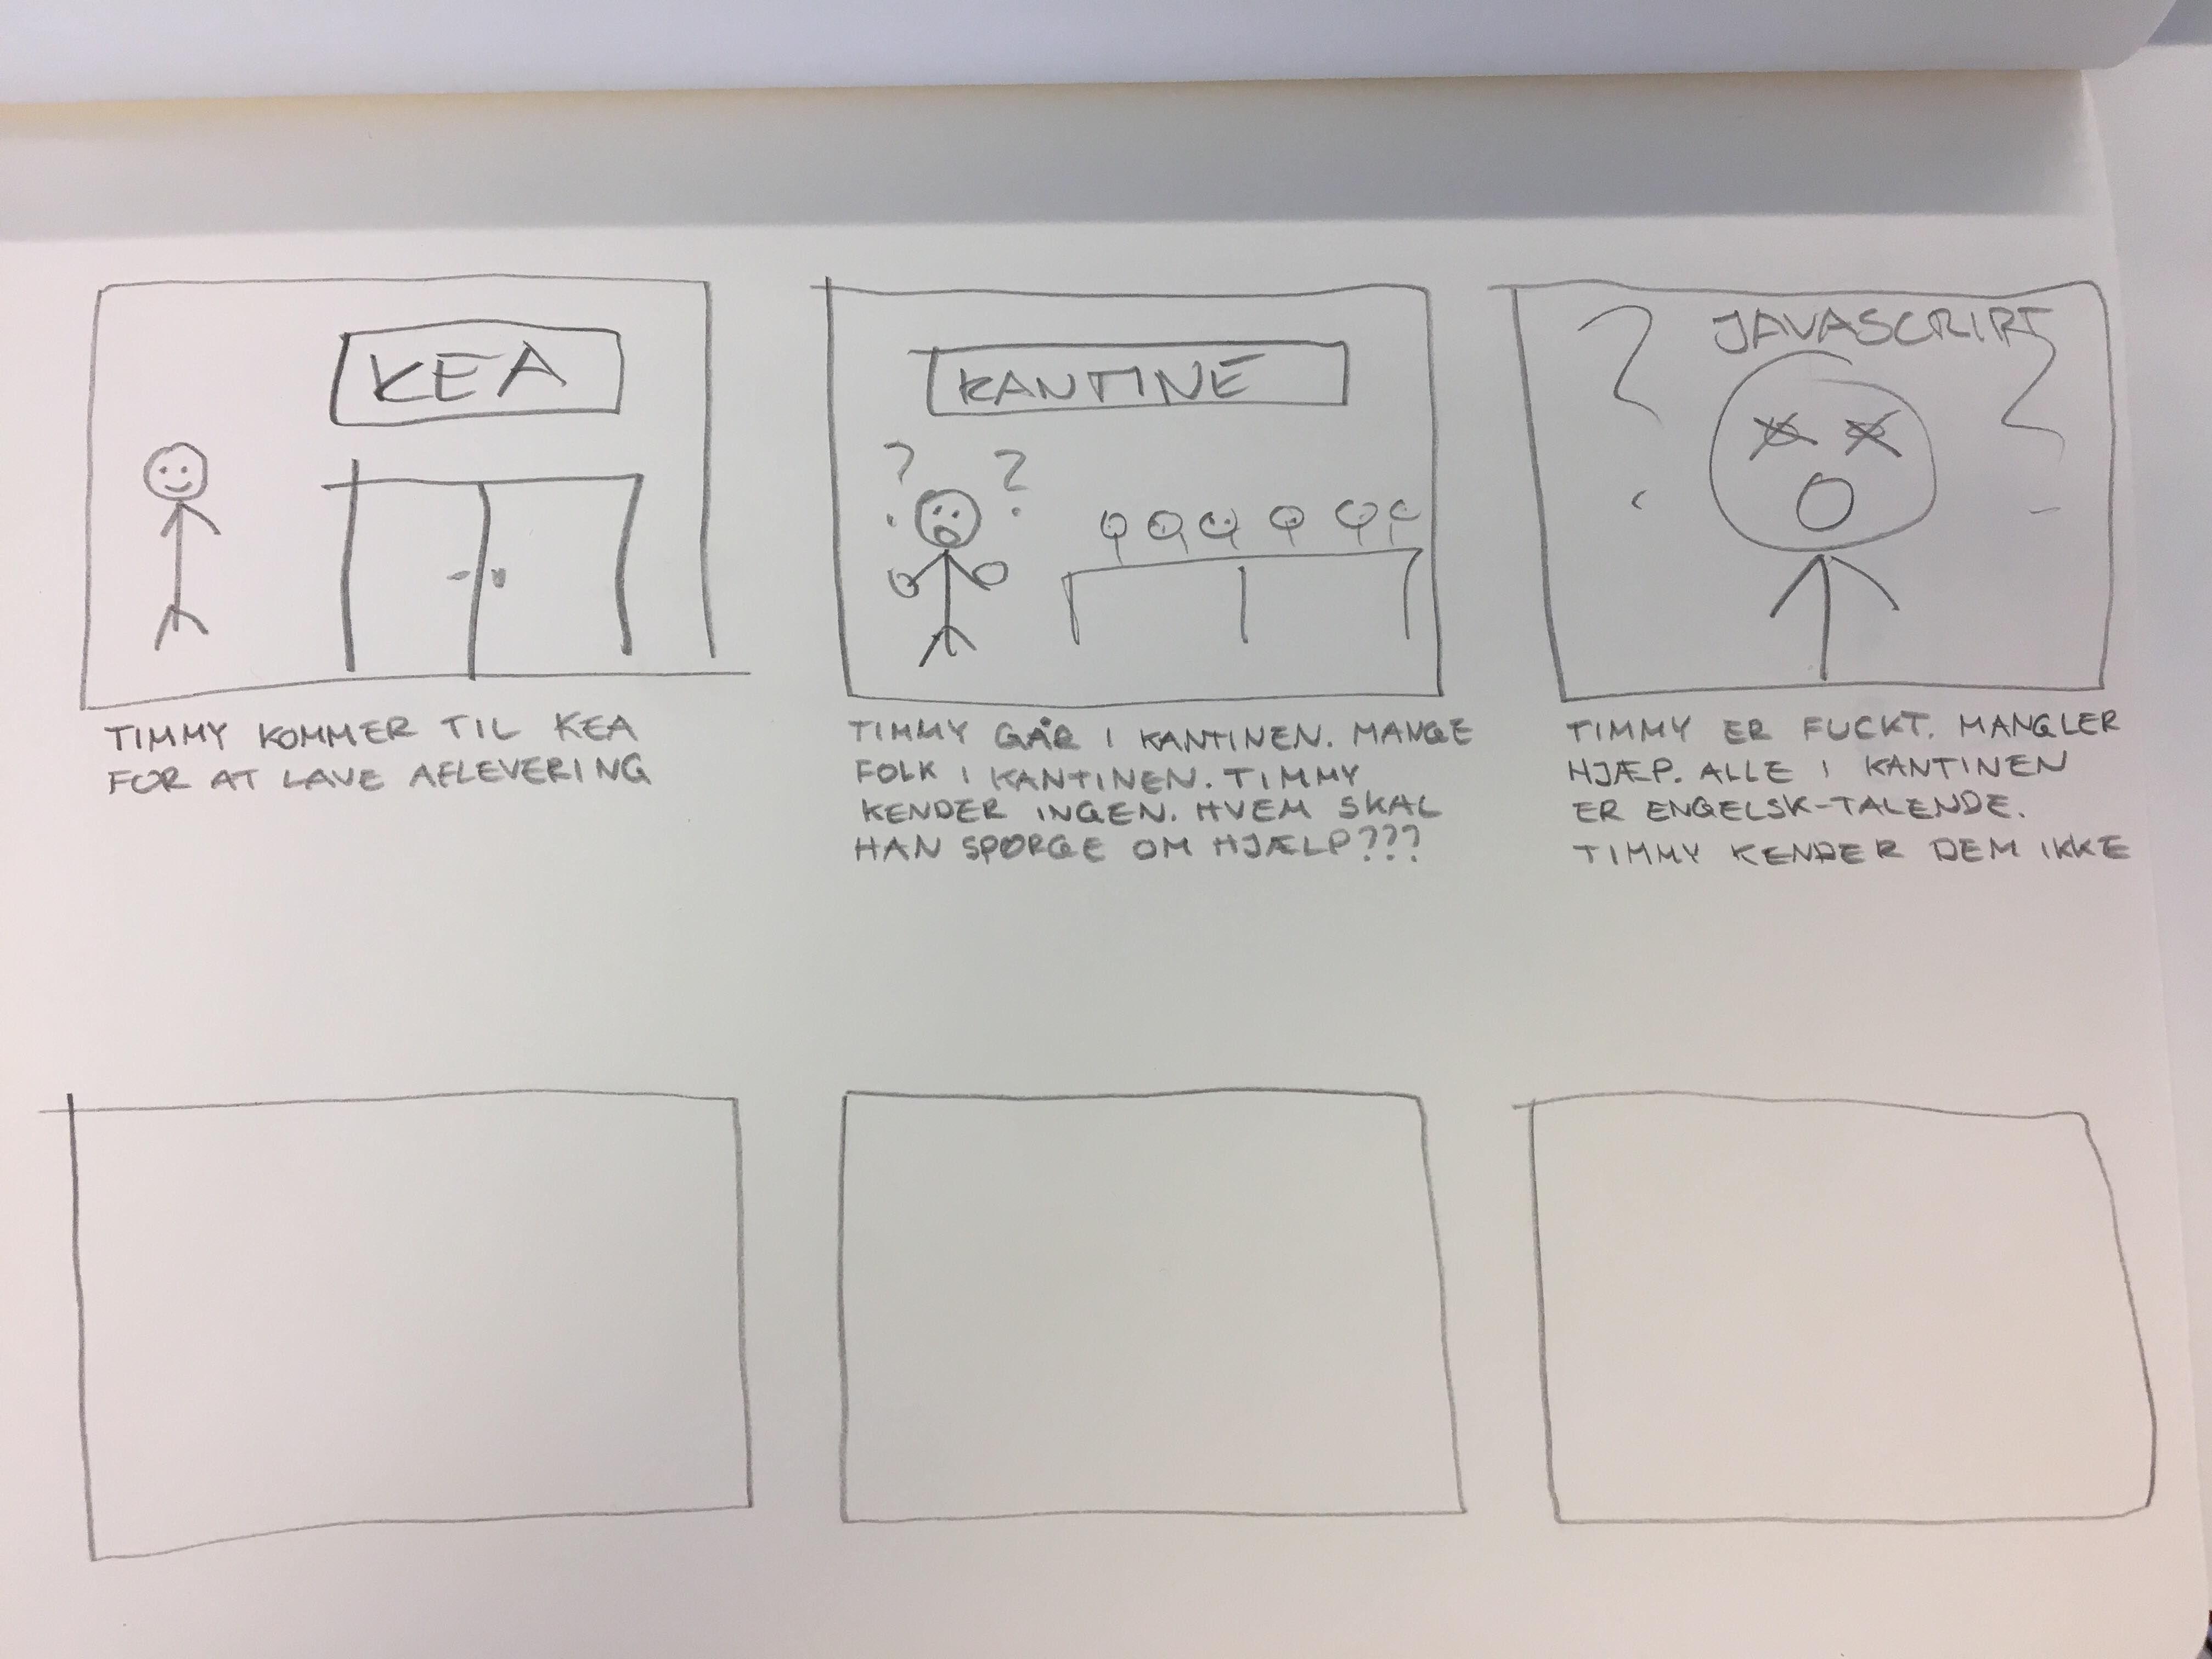 KEA
TIMMY KOMMER TIL KEA
FOR AT LAVE AFLEVERING
KANTINE
? ?
TIMMY GÅR I KANTINEN. MANGE
FOLK I KANTINEN. TIMMY
KENDER INGEN. HVEM SKAL
HAN SPØRGE OM HJÆLP???
? JAVASCRIPT ?
TIMMY ER FUCKT. MANGLER
HJÆP. ALLE I KANTINEN
ER ENGELSK-TALENDE.
TIMMY KENDER DEM IKKE